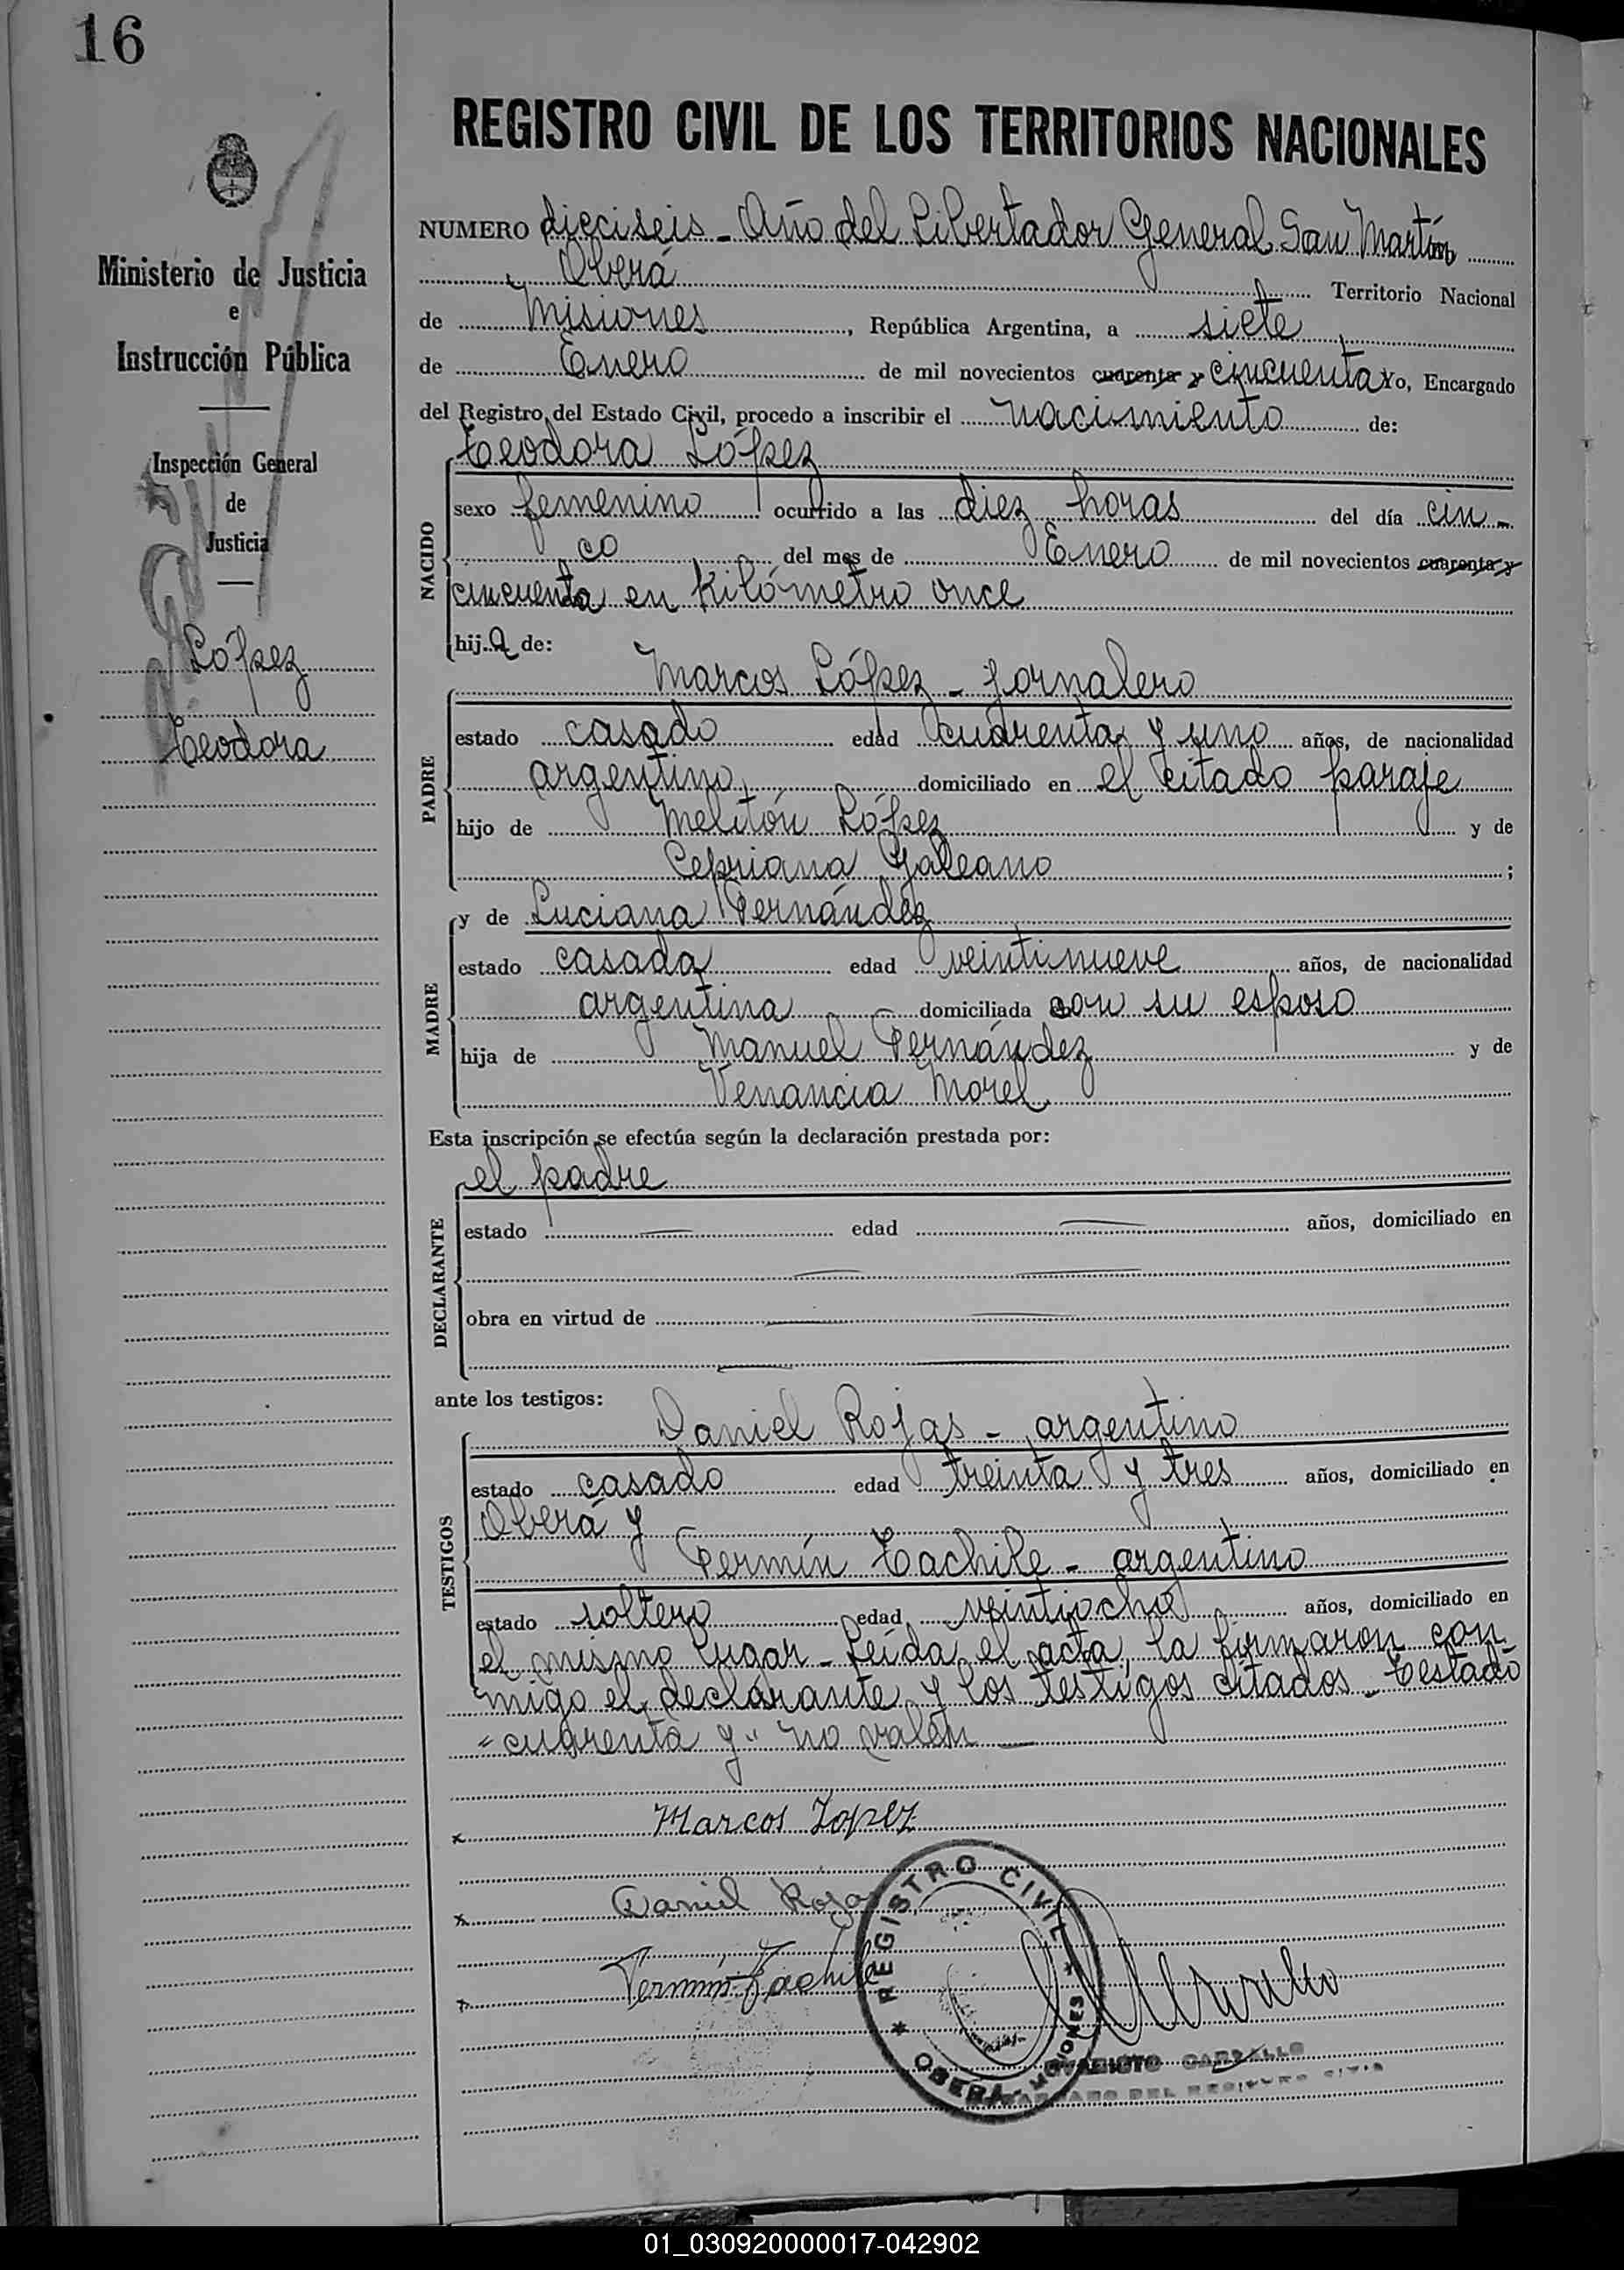 16
REGISTRO CIVIL DE LOS TERRITORIOS NACIONALES
Ministerio de Justicia
e
Instrucción Pública
Inspección General
de
Justicia
López
Teodora
NUMERO dieciseis - Año del Libertador General San Martín
Oberá Territorio Nacional
de Misiones, República Argentina, a siete
de Enero de mil novecientos cuarenta y cincuenta Yo, Encargado
del Registro del Estado Civil, procedo a inscribir el nacimiento de:
Teodora López
NACIDO
sexo femenino ocurrido a las diez horas del día cin-
co del mes de Enero de mil novecientos cuarenta y
cincuenta en kilómetro once
hija de:
Marcos López - jornalero
PADRE
estado casado edad cuarenta y uno años, de nacionalidad
argentino domiciliado en el citado paraje
hijo de Melitón López y de
Cepriana Galeano ;
y de Luciana Fernández
MADRE
estado casada edad veintinueve años, de nacionalidad
argentina domiciliada con su esposo
hija de Manuel Fernández y de
Venancia Morel
Esta inscripción se efectúa según la declaración prestada por:
el padre
DECLARANTE
estado — edad — años, domiciliado en
obra en virtud de —
ante los testigos:
Daniel Rojas - argentino
TESTIGOS
estado casado edad treinta y tres años, domiciliado en
Oberá y
Fermín Tachile - argentino
estado soltero edad veintiocho años, domiciliado en
el mismo lugar - Leída el acta, la firmaron con
migo el declarante y los testigos citados - Testado
"cuarenta y" no valen —
x Marcos Lopez
x Daniel Rojas
x Fermín Tachile
REGISTRO CIVIL
OBERÁ - MISIONES
CARBALLO
ENCARGADO DEL REGISTRO CIVIL
01_030920000017-042902